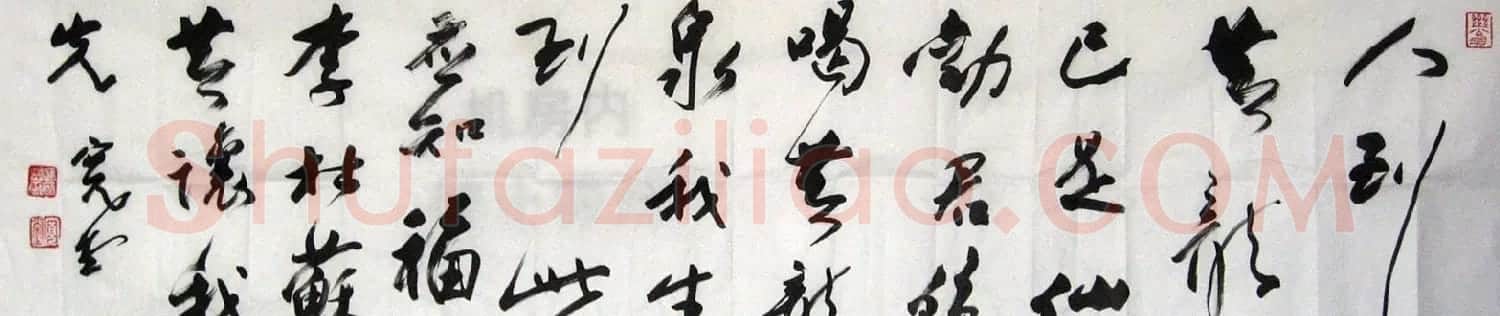 人到
黄龍
已是仙
勸君饱
喝黄龍
泉我生
到此
应知福
李杜蘇
黄讓我
先
寬堂
Shufaziliao.COM